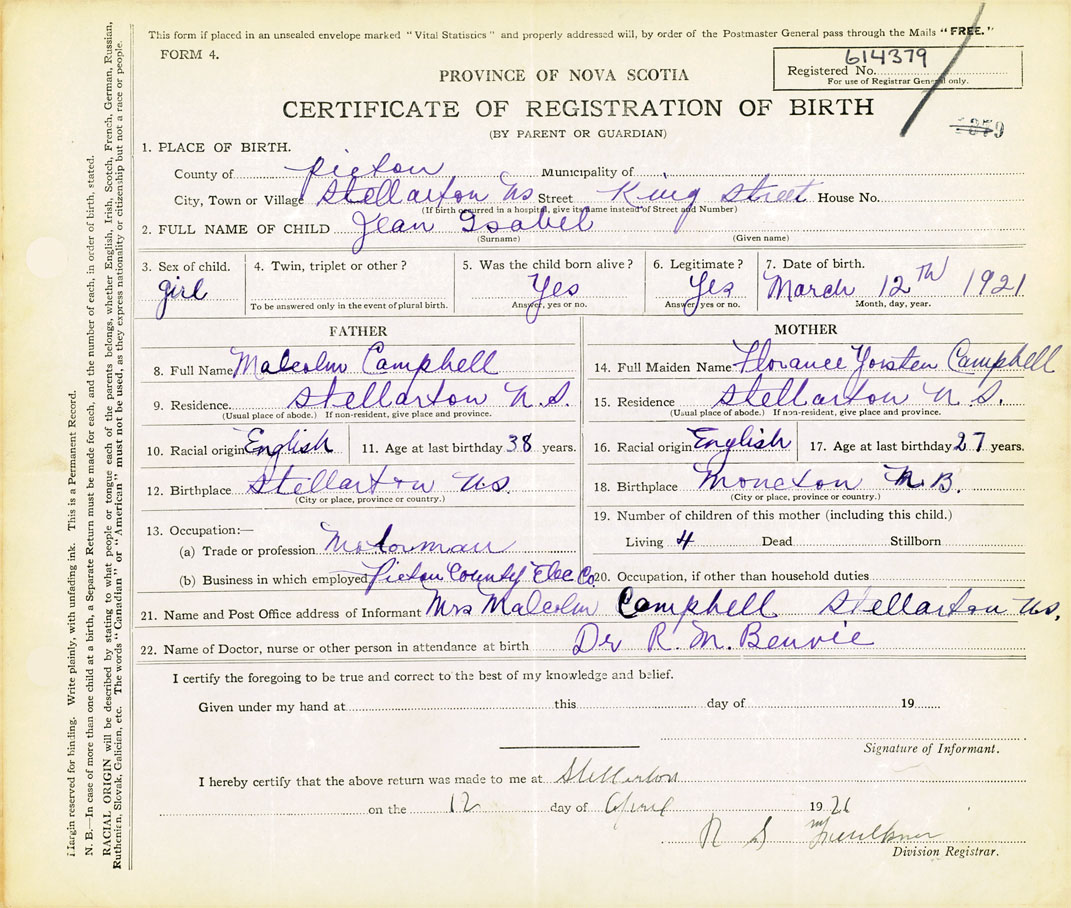 This form if placed in an unsealed envelope marked "Vital Statistics" and properly addressed will, by order of the Postmaster General pass through the Mails "FREE."
FORM 4.
614379
Registered No.
For use of Registrar General only.
PROVINCE OF NOVA SCOTIA
CERTIFICATE OF REGISTRATION OF BIRTH
(BY PARENT OR GUARDIAN)
1. PLACE OF BIRTH.
County of Picton Municipality of
City, Town or Village Stellarton Ns Street King Street House No.
(If birth occurred in a hospital, give its name instead of Street and Number)
2. FULL NAME OF CHILD Jean Isabel
(Surname) (Given name)
3. Sex of child. 4. Twin, triplet or other? 5. Was the child born alive? 6. Legitimate? 7. Date of birth.
girl Yes Yes March 12TH 1921
To be answered only in the event of plural birth. Answer, yes or no. Answer, yes or no. Month, day, year.
FATHER MOTHER
8. Full Name Malcolm Campbell 14. Full Maiden Name Florance Yorsten Campbell
9. Residence Stellarton N.S. 15. Residence Stellarton N S.
(Usual place of abode.) If non-resident, give place and province. (Usual place of abode.) If non-resident, give place and province.
10. Racial origin English 11. Age at last birthday 38 years. 16. Racial origin English 17. Age at last birthday 27 years.
12. Birthplace Stellarton Ns. 18. Birthplace Moncton N.B.
(City or place, province or country.) (City or place, province or country.)
13. Occupation:— 19. Number of children of this mother (including this child.)
(a) Trade or profession Motorman Living 4 Dead Stillborn
(b) Business in which employed Picton County Elec Co 20. Occupation, if other than household duties
21. Name and Post Office address of Informant Mrs Malcolm Campbell Stellarton Ns.
22. Name of Doctor, nurse or other person in attendance at birth Dr R. M. Benvie
I certify the foregoing to be true and correct to the best of my knowledge and belief.
Given under my hand at this day of 19
Signature of Informant.
I hereby certify that the above return was made to me at Stellarton
on the 12 day of April 1921
R S Faulkner
Division Registrar.
Margin reserved for binding. Write plainly, with unfading ink. This is a Permanent Record.
N. B.—In case of more than one child at a birth, a Separate Return must be made for each, and the number of each, in order of birth, stated.
RACIAL ORIGIN will be described by stating to what people or tongue each of the parents belongs, whether English, Irish, Scotch, French, German, Russian,
Ruthenien, Slovak, Galician, etc. The words "Canadian" or "American" must not be used, as they express nationality or citizenship but not a race or people.